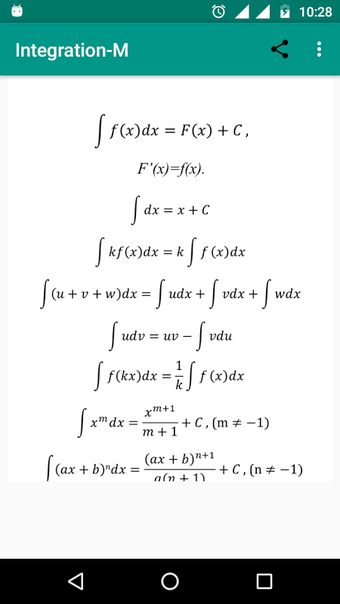 10:28
Integration-M
∫ f(x)dx = F(x) + C ,
F’(x)=f(x).
∫ dx = x + C
∫ kf(x)dx = k ∫ f (x)dx
∫ (u + v + w)dx = ∫ udx + ∫ vdx + ∫ wdx
∫ udv = uv − ∫ vdu
∫ f(kx)dx = 1/k ∫ f (x)dx
∫ xᵐdx = xᵐ⁺¹/(m + 1) + C , (m ≠ −1)
∫ (ax + b)ⁿdx = (ax + b)ⁿ⁺¹/a(n + 1) + C , (n ≠ −1)